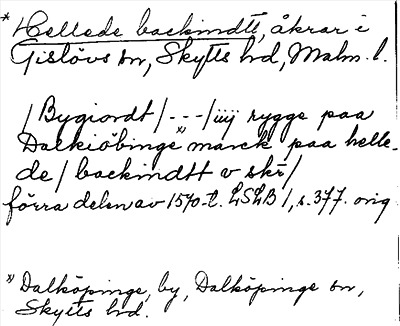 * Hellede backindtt, åkrar i
Gislövs sn, Skytts hd, Malm. l.
/Bygiordt/---/iiij rygge paa
Dalkiöbinge x) marck paa helle-
de/backindtt v skr/
förra delen av 1570-t. LSLB 1, s. 377. orig
x) Dalköpinge, by, Dalköpinge sn,
Skytts hd.